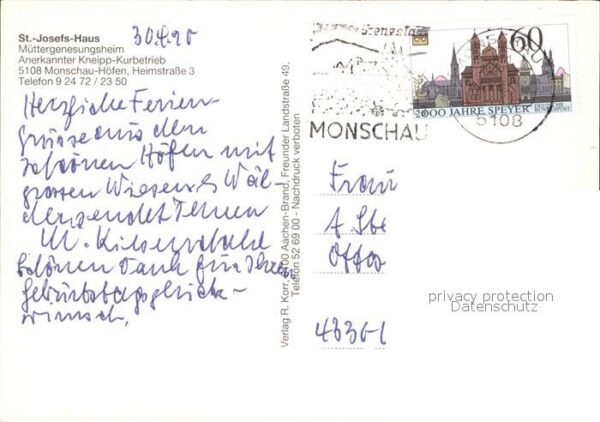 St.-Josefs-Haus
Müttergenesungsheim
Anerkannter Kneipp-Kurbetrieb
5108 Monschau-Höfen, Heimstraße 3
Telefon 9 24 72 / 23 50
30.4.90
Herzliche Ferien-
grüsse aus dem
schönen Höfen mit
grossen Wiesen & Wäl-
dern sendet Ihnen
M.
Schönen Dank für Ihren
Geburtstagsglück-
wunsch.
Verlag R. Korr, 5100 Aachen-Brand, Freunder Landstraße 49,
Telefon 52 69 00 - Nachdruck verboten
60
2000 JAHRE SPEYER
DEUTSCHE
BUNDESPOST
MONSCHAU
5108
Frau
A.
privacy protection
Datenschutz